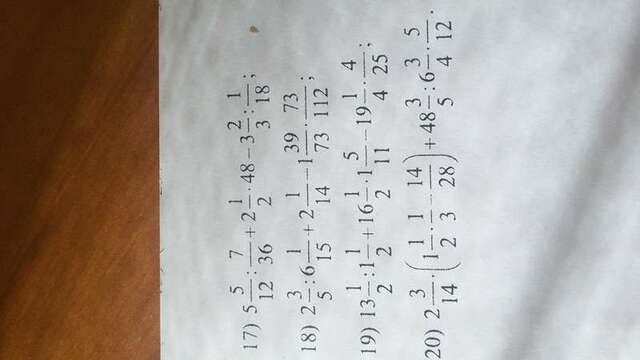 17) 5 5/12 : 7/36 + 2 1/2 · 48 – 3 2/3 : 1/18 ;
18) 2 3/5 : 6 1/15 + 2 1/14 – 1 39/73 · 73/112 ;
19) 13 1/2 : 1 1/2 + 16 1/2 · 1 5/11 – 19 1/4 · 4/25 ;
20) 2 3/14 · (1 1/2 · 1/3 – 14/28) + 48 3/5 : 6 3/4 · 5/12 .